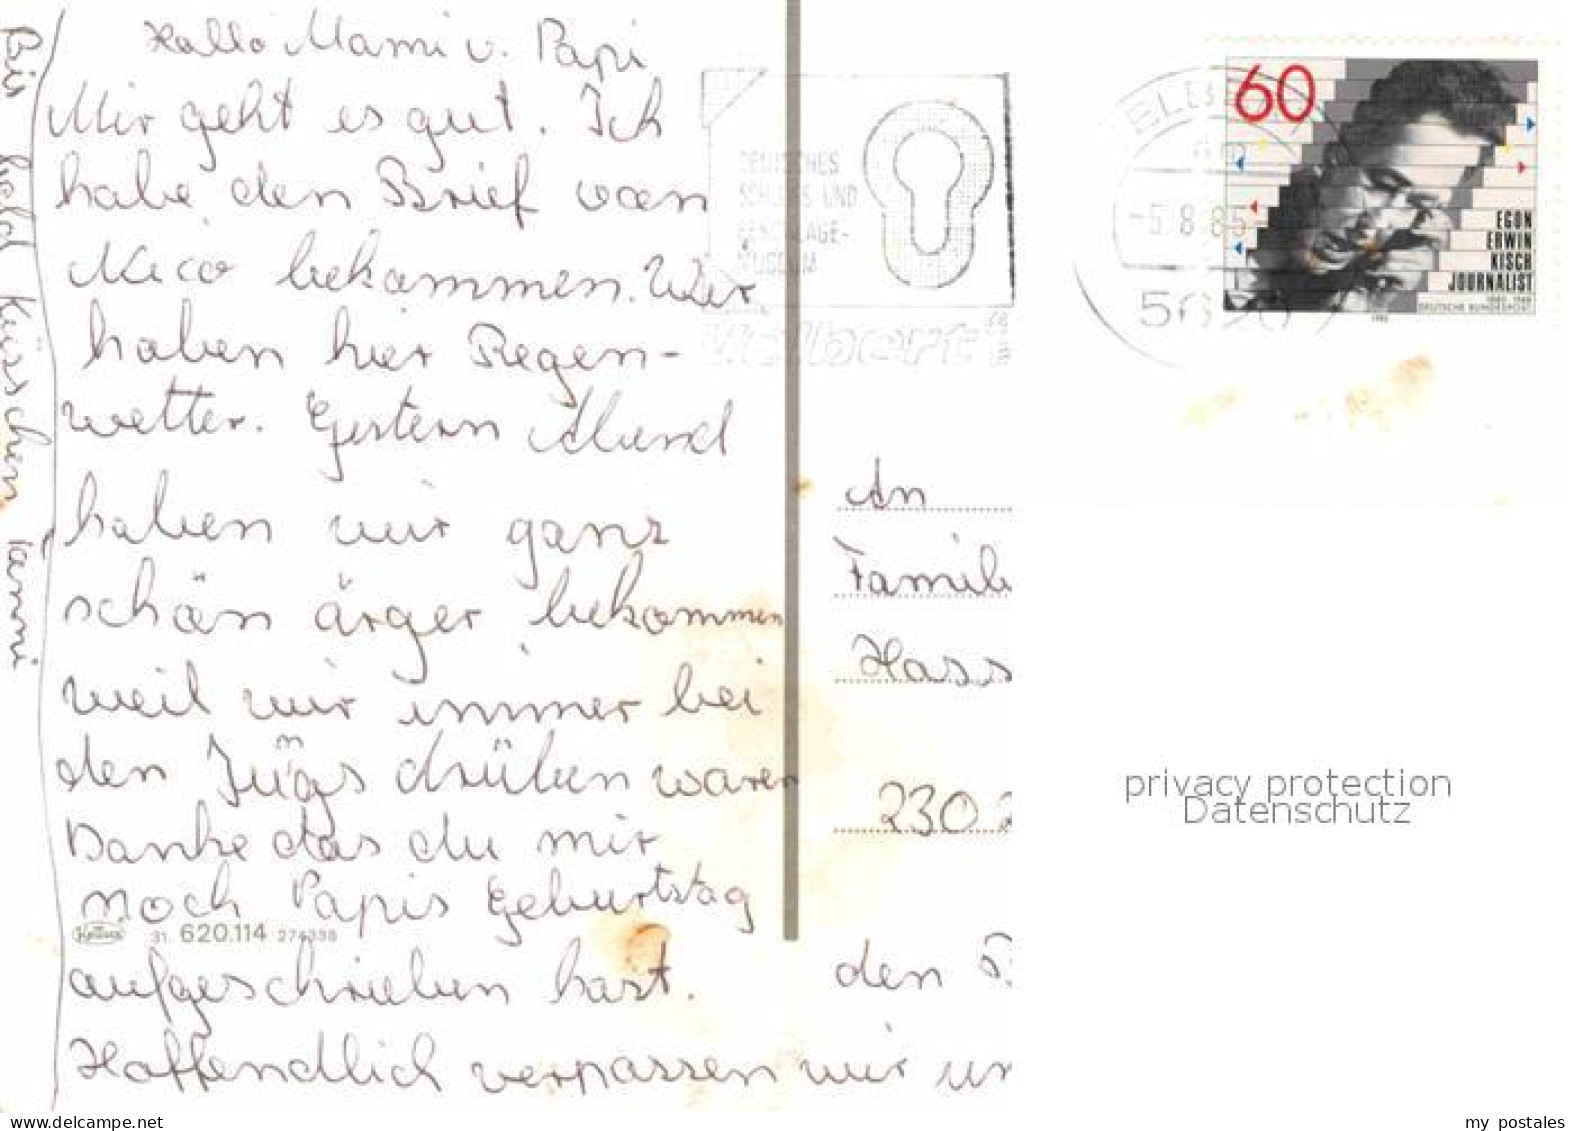 Hallo Mami u. Papi
Mir geht es gut. Ich
habe den Brief von
Nico bekommen. Wir
haben hier Regen-
wetter. Gestern Abend
haben wir ganz
schön ärger bekommen
weil wir immer bei
den Jüngs drüben waren
Danke das du mir
noch Papis Geburtstag
aufgeschrieben hast.
Hoffendlich verpassen wir un
Bis bald Küsschen
31. 620.114 274338
DEUTSCHES
SCHLOSS UND
BESCHLÄGE-
MUSEUM
Velbert
-5.8.85
5620
60
EGON
ERWIN
KISCH
JOURNALIST
1885-1948
DEUTSCHE BUNDESPOST
1985
An
Famili
Hass
230 2
den 5.
privacy protection
Datenschutz
www.delcampe.net
my postales